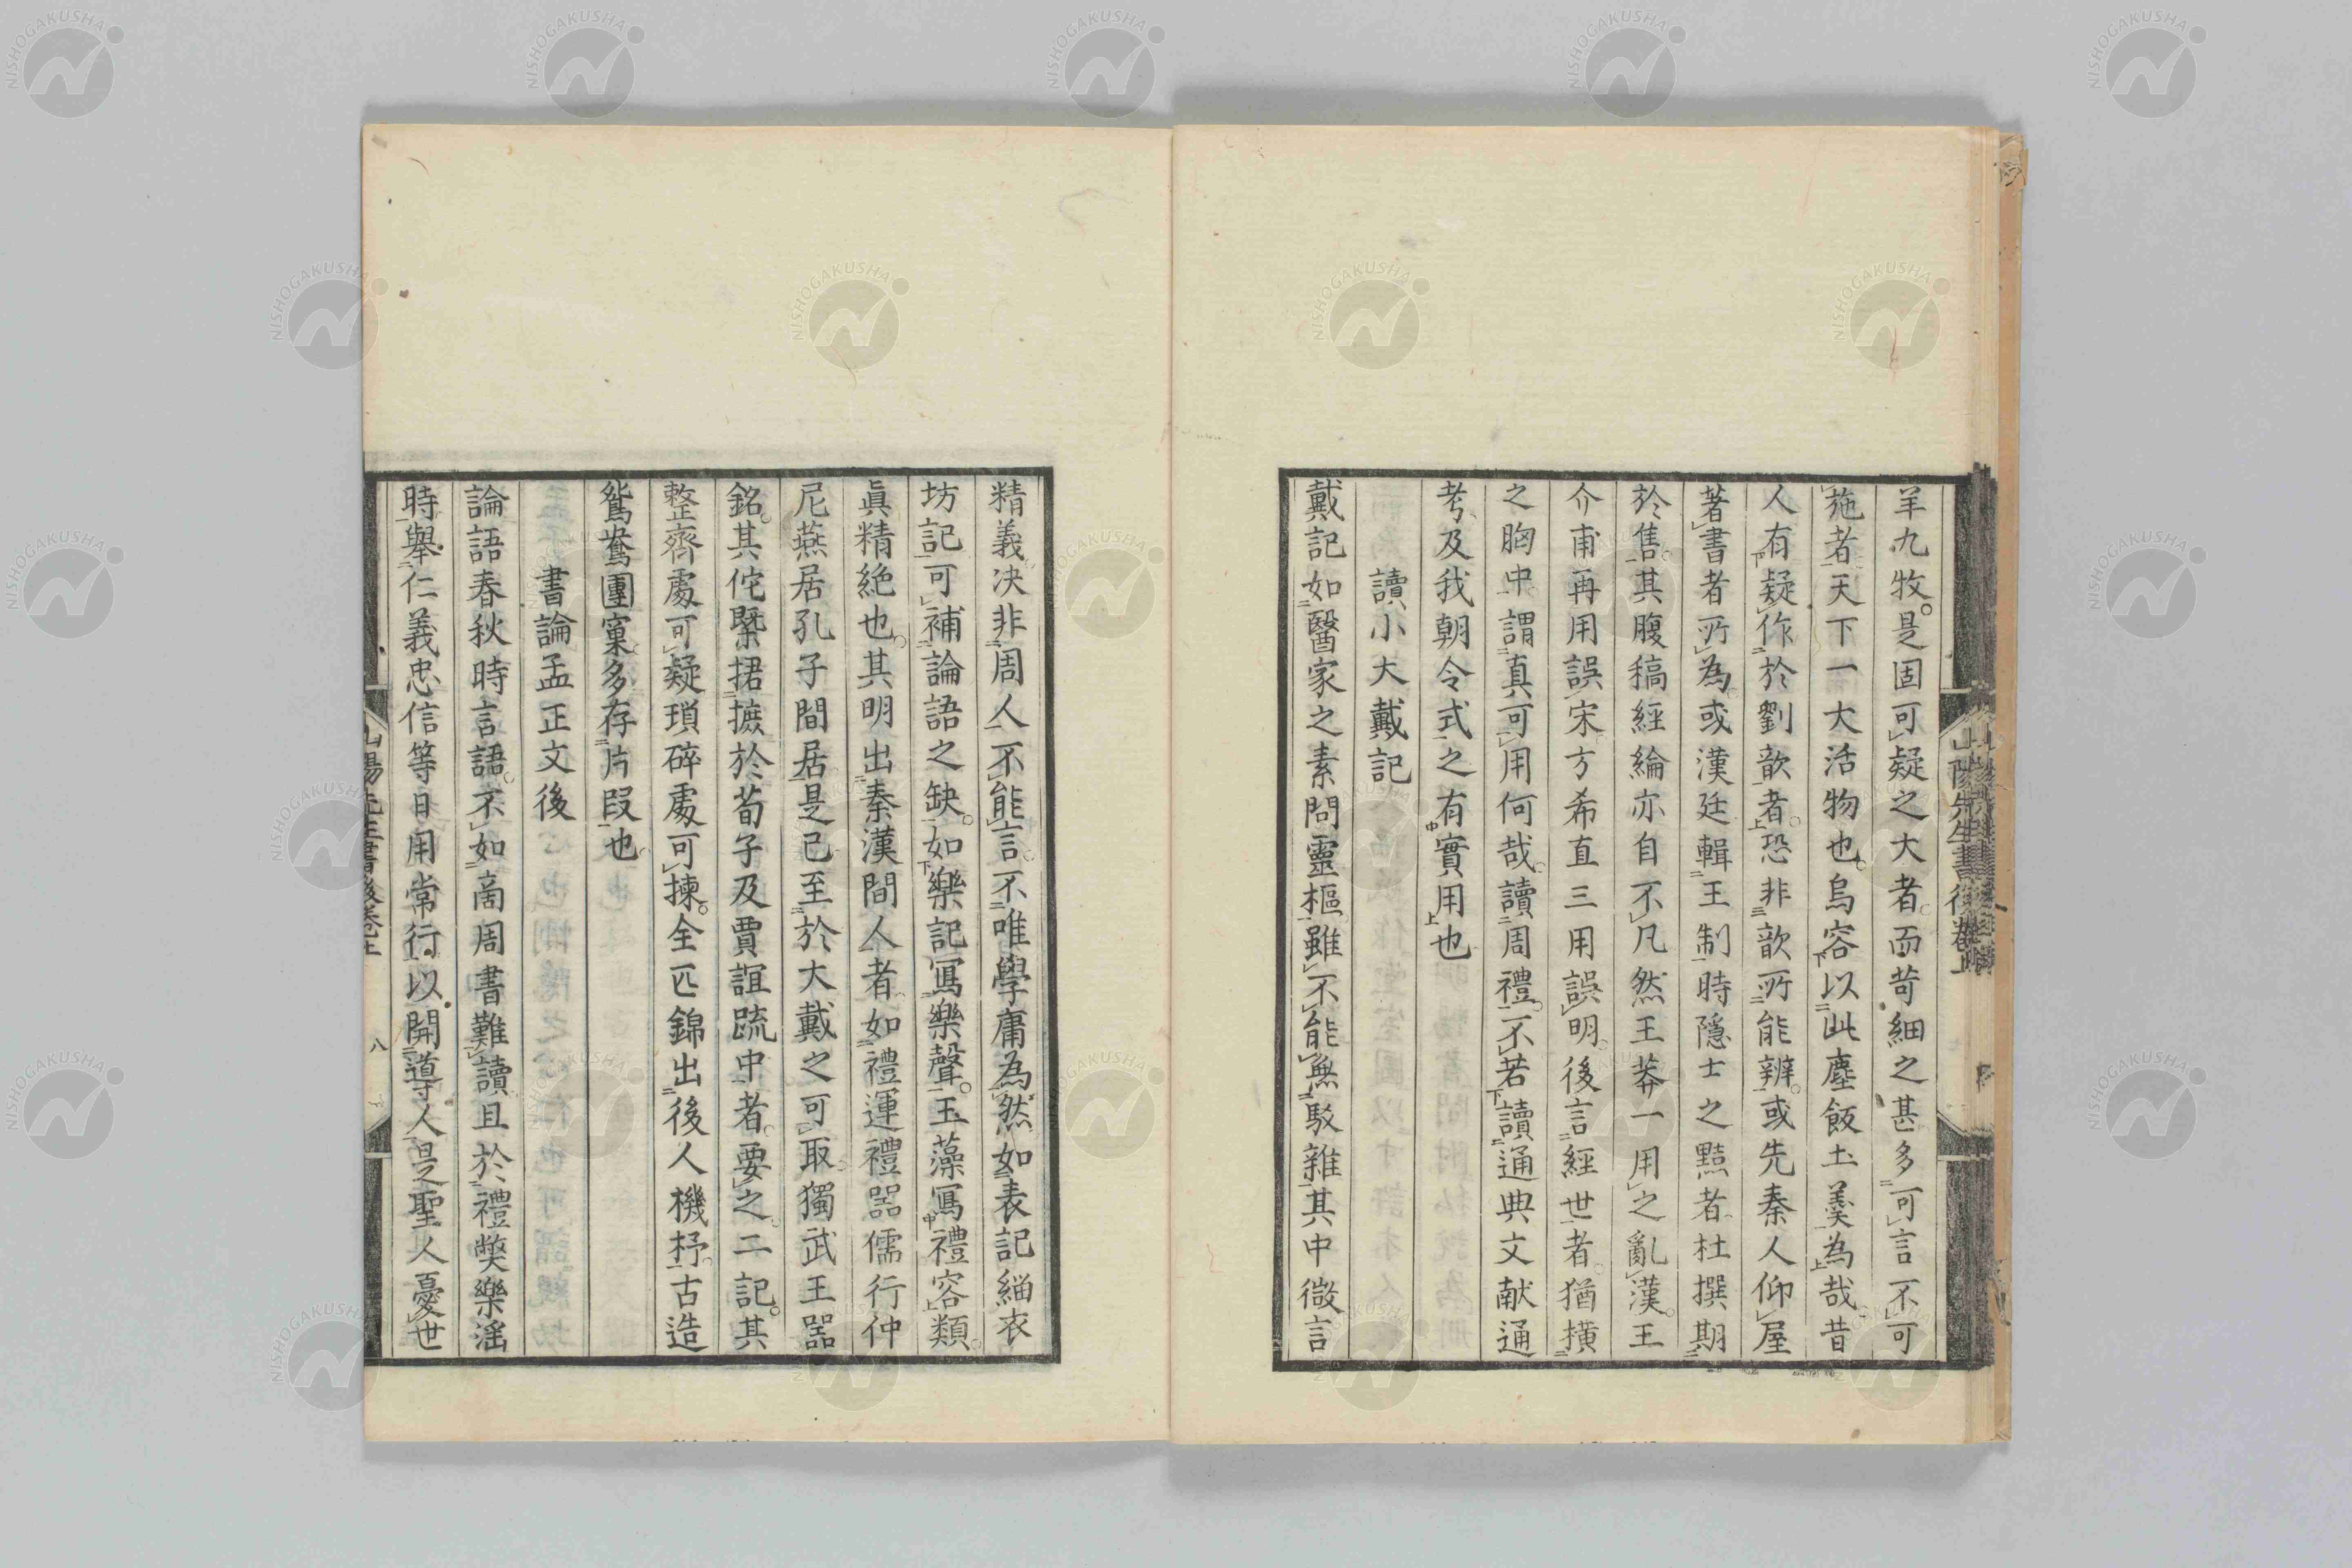 羊九牧是固可疑之大者而苛細之甚多可言不可
施者天下一大活物也烏容以此塵飯土羹為哉昔
人有疑作於劉歆者恐非歆所能辨或先秦人仰屋
著書者所為或漢廷輯王制時隱士之黠者杜撰期
於售其腹稿經綸亦自不凡然王莽一用之亂漢王
介甫再用誤宋方希直三用誤明後言經世者猶擴
之胸中謂真可用何哉讀周禮不若讀通典文献通
考及我朝令式之有實用也
讀小大戴記
戴記如醫家之素問靈樞雖不能無駁雜其中微言
精義決非周人不能言不唯學庸為然如表記緇衣
坊記可補論語之缺如樂記寫樂聲玉藻寫禮容類
眞精絶也其明出秦漢間人者如禮運禮器儒行仲
尼燕居孔子間居是已至於大戴之可取獨武王器
銘其佗槩捃摭於荀子及賈誼疏中者要之二記其
整齊處可疑瑣碎處可揀全匹錦出後人機杼古造
鴛鴦團窠多存片段也
書論孟正文後
論語春秋時言語不如商周書難讀且於禮獘樂滛
時舉仁義忠信等日用常行以開導人是聖人憂世
山陽先生書後卷上
八
NISHOGAKUSHA